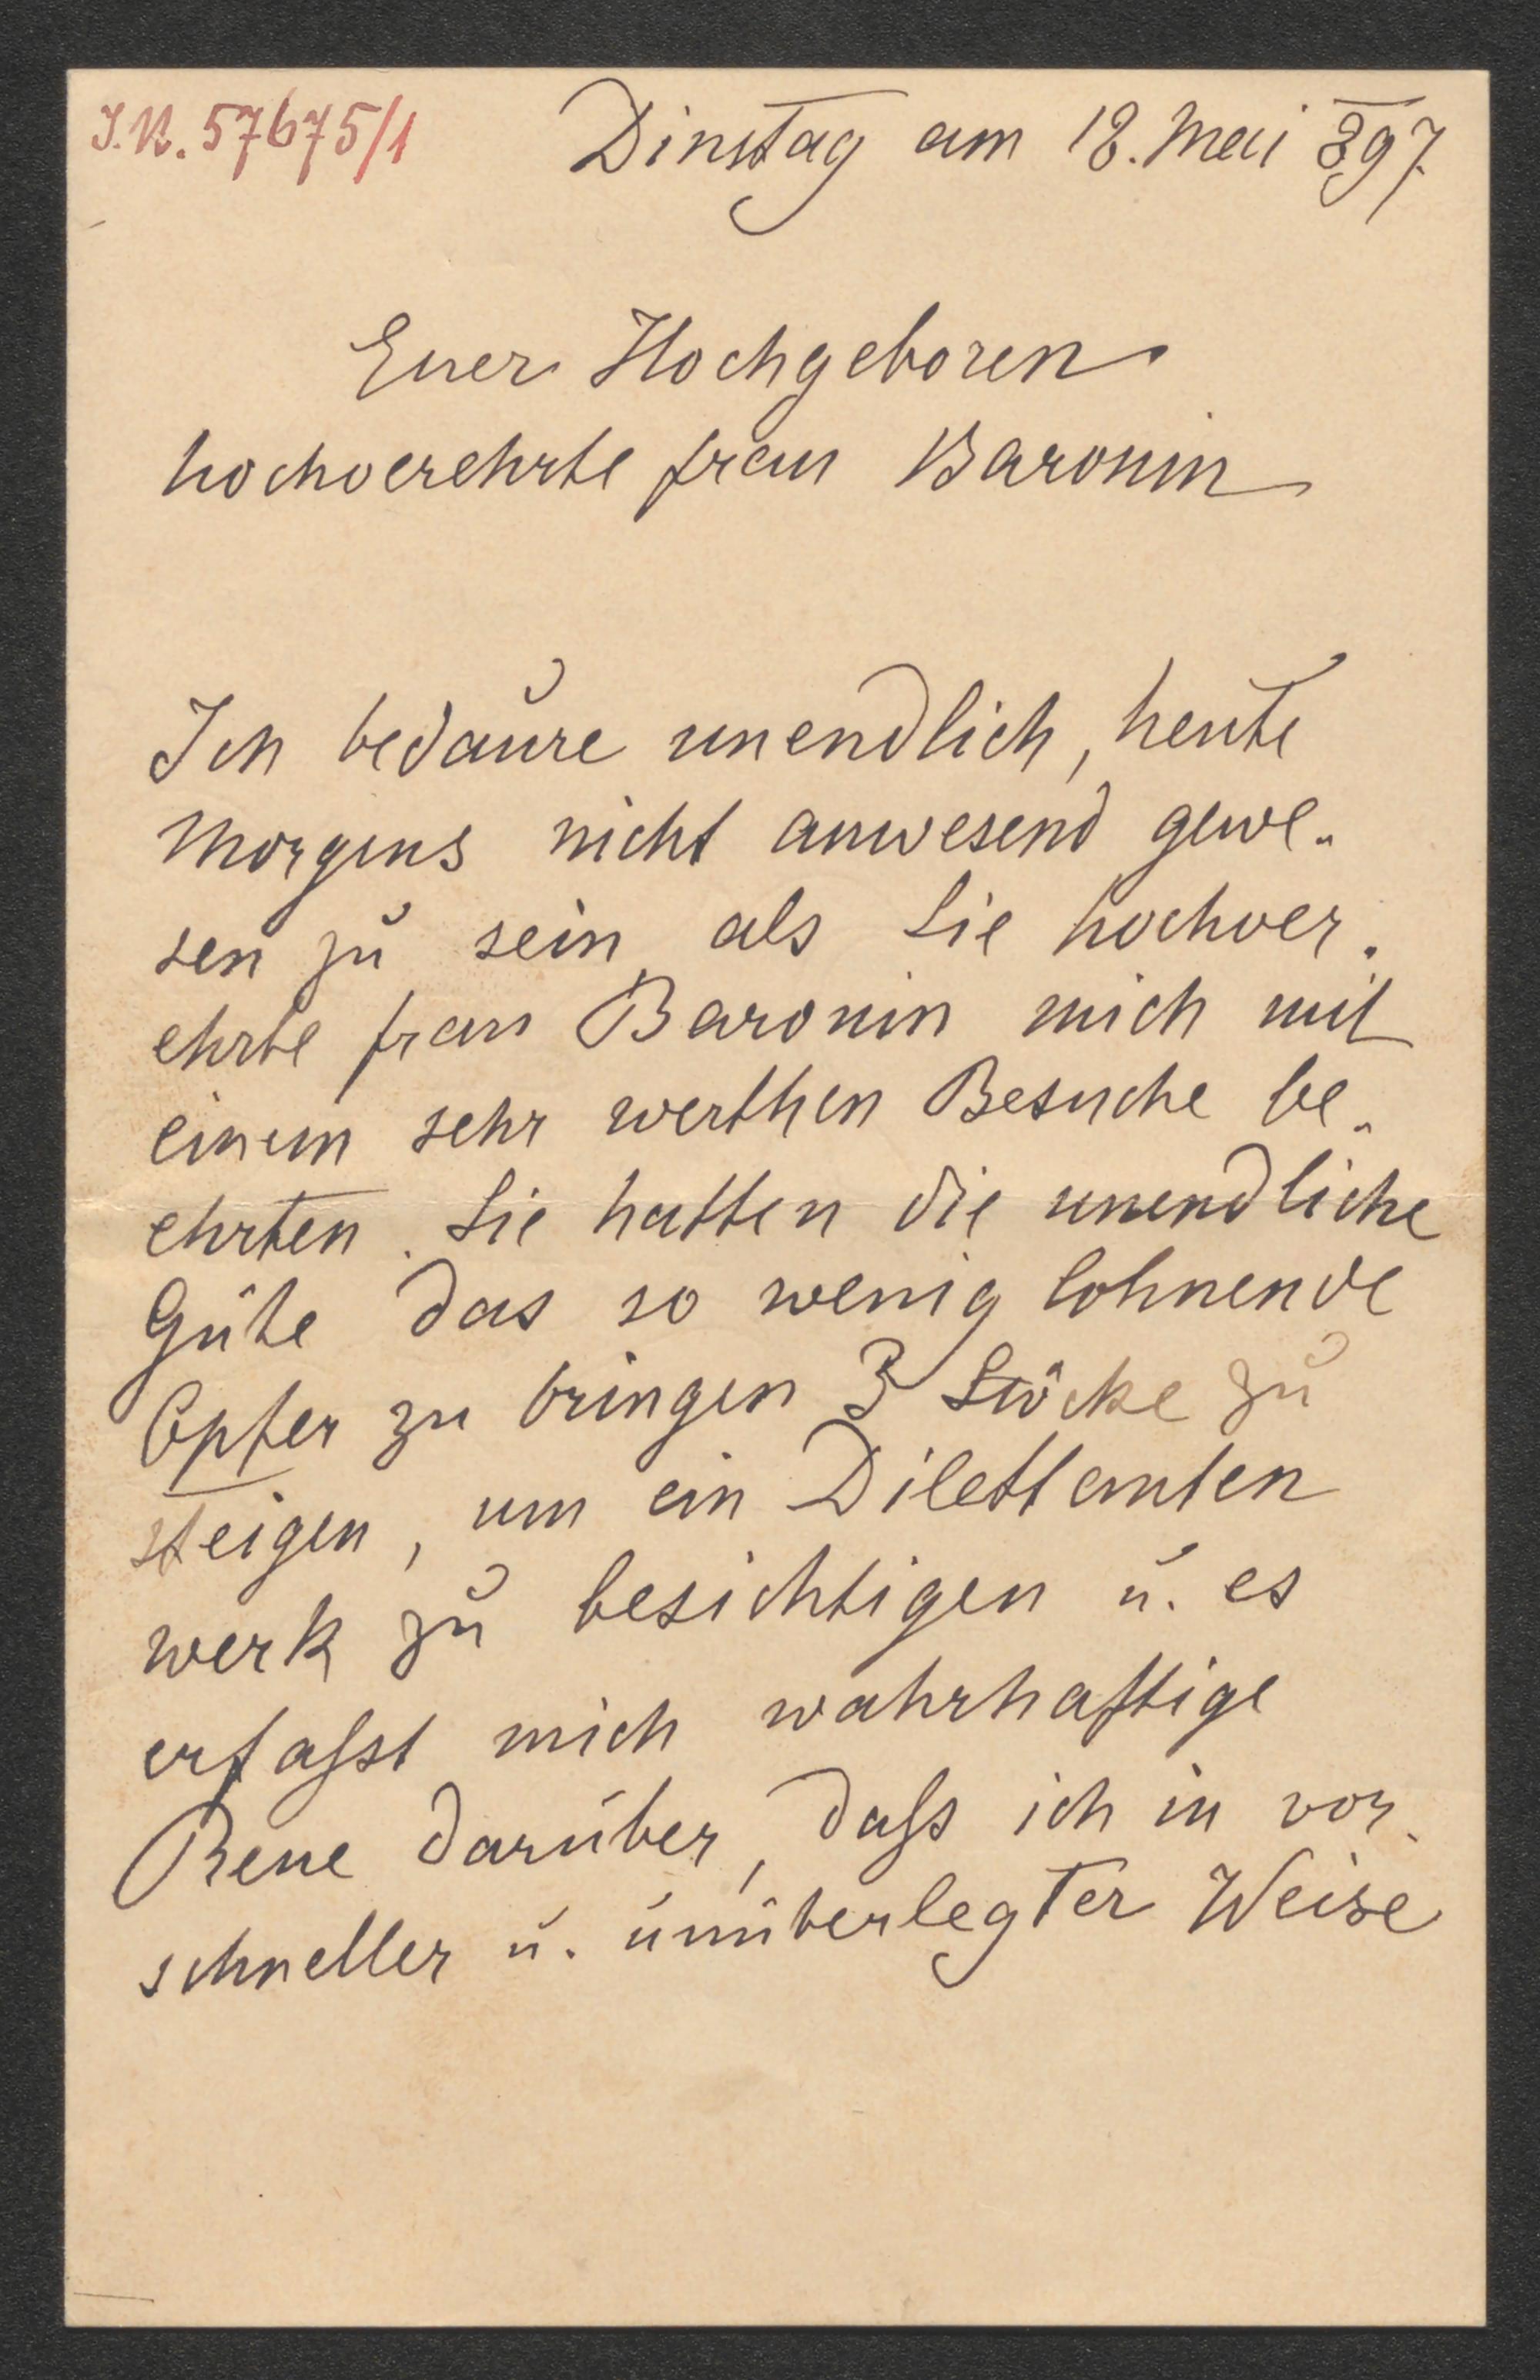 J.N. 57675/1
Dinstag am 18. Mai 897.
Euer Hochgeboren
hochverehrte frau Baronin
Ich bedaure unendlich, heute
Morgens nicht anwesend gewe-
sen zu sein als Sie hochver-
ehrte frau Baronin mich mit
einem sehr werthen Besuche be-
ehrten. Sie hatten die unendliche
Güte das so wenig lohnende
Opfer zu bringen 3 Stöcke zu
steigen, um ein Dilettanten
werk zu besichtigen u. es
erfaßst mich wahrhaftige
Reue darüber, daßs ich in vor-
schneller u. unüberlegter Weise